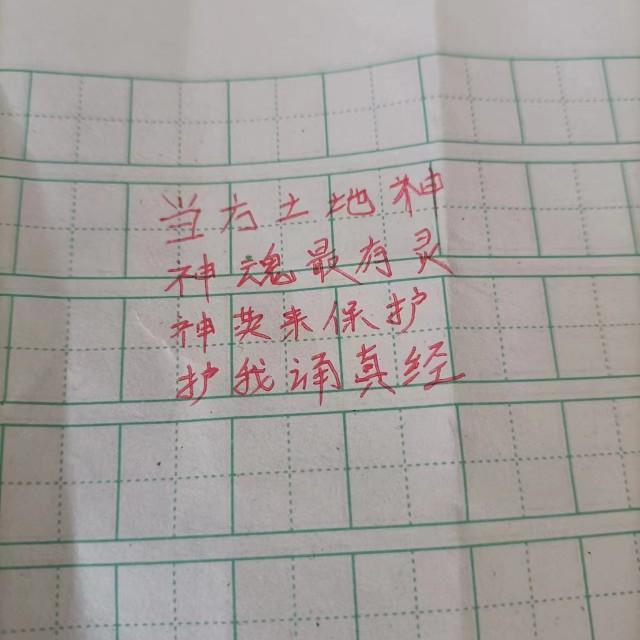 当方土地神
神魂最有灵
神共来保护
护我诵真经